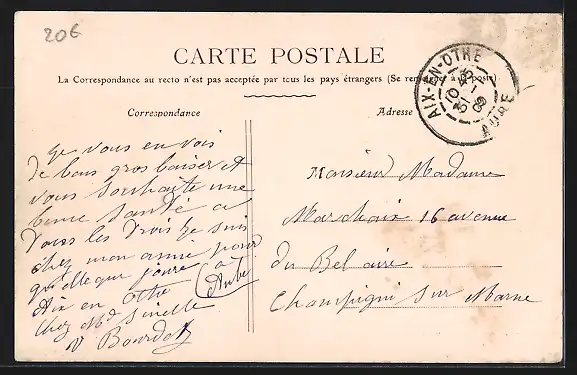 20€
CARTE POSTALE
La Correspondance au recto n'est pas acceptée par tous les pays étrangers (Se renseigner à la poste).
Correspondance
Adresse
AIX-EN-OTHE
AUBE
je vous en vois
de bons gros baiser et
vous souhaite une
bonne santé a
Tous les trois je suis
chez mon amie pour
quelque jours
Aix en Othe (Aube)
chez Md
V Bourdot
Monsieur Madame
Marchaix 16 avenue
du Bel aire
Champigni sur Marne